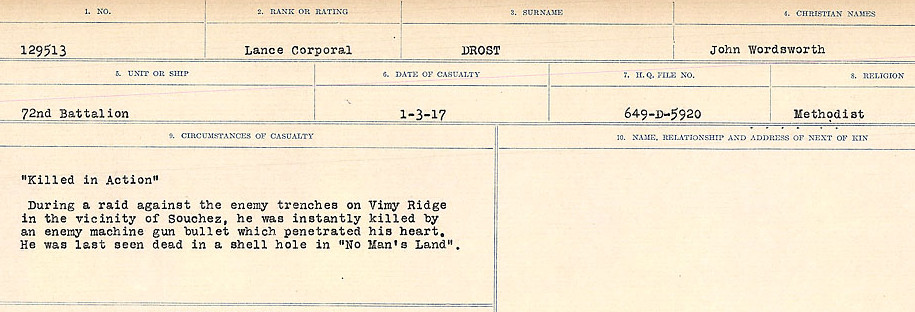 1. NO.
2. RANK OR RATING
3. SURNAME
4. CHRISTIAN NAMES
129513
Lance Corporal
DROST
John Wordsworth
5. UNIT OR SHIP
6. DATE OF CASUALTY
7. H.Q. FILE NO.
8. RELIGION
72nd Battalion
1-3-17
649-D-5920
Methodist
9. CIRCUMSTANCES OF CASUALTY
10. NAME, RELATIONSHIP AND ADDRESS OF NEXT OF KIN
"Killed in Action"
During a raid against the enemy trenches on Vimy Ridge
in the vicinity of Souchez, he was instantly killed by
an enemy machine gun bullet which penetrated his heart.
He was last seen dead in a shell hole in "No Man's Land".